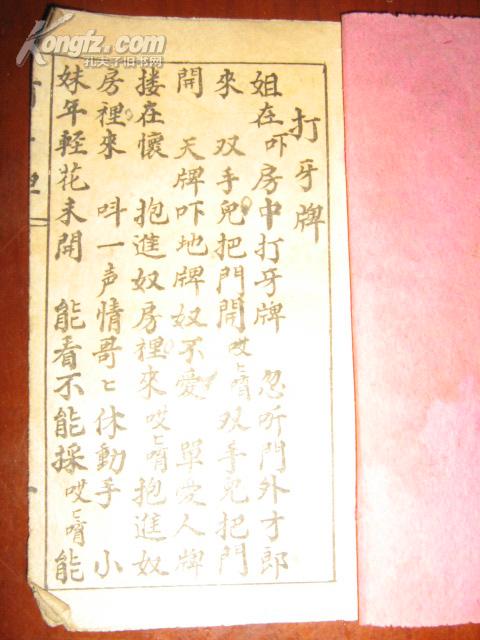 Kongfz.com
孔夫子旧书网
打牙牌
姐在吓房中打牙牌　忽听門外才郎
來　双手兒把門開哎〻唷双手兒把門
開　天牌吓地牌奴不愛　單爱人牌
搂在懷　抱進奴房裡來哎〻唷抱進奴
房裡來　呌一声情哥〻休動手　小
妹年輕花未開　能看不能採哎〻唷能